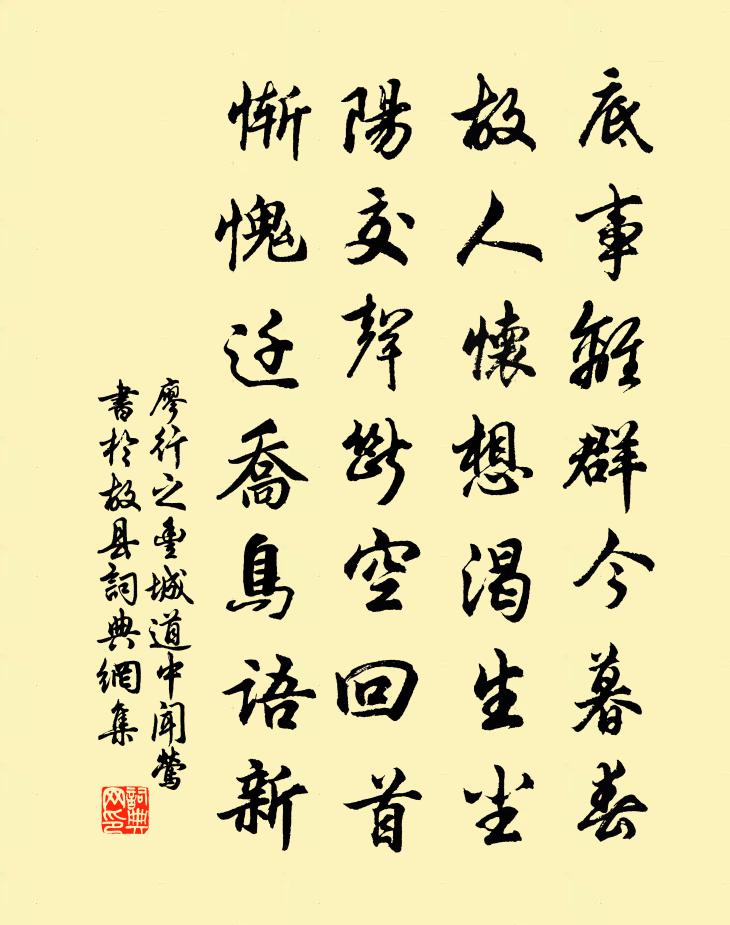 底事離群今暮春
故人懷想渴生塵
陽交聲斷空回首
慚愧迁喬鳥語新
廖行之豐城道中聞鶯
書於故县詞典網集
詞典
网印